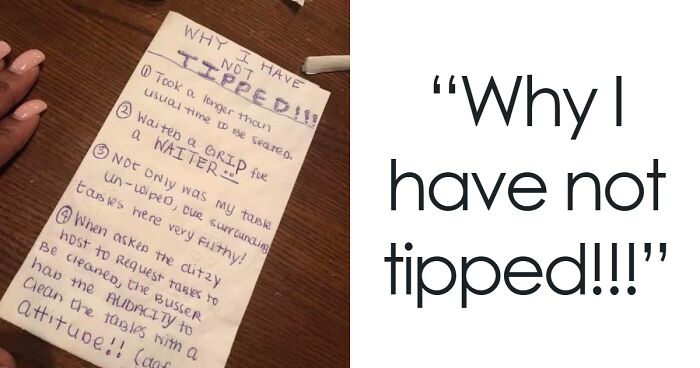 WHY I HAVE
NOT
TIPPED!!!
① Took a longer than
usual time to be seated.
② Waited a GRIP for
a WAITER!!
③ NOT ONLY was my table
un-wiped, our surrounding
tables here very Filthy!
④ When asked the ditzy
host to request tables to
Be cleaned, the BUSSER
had the AUDACITY to
clean the tables with a
attitude!!
“Why I
have not
tipped!!!”